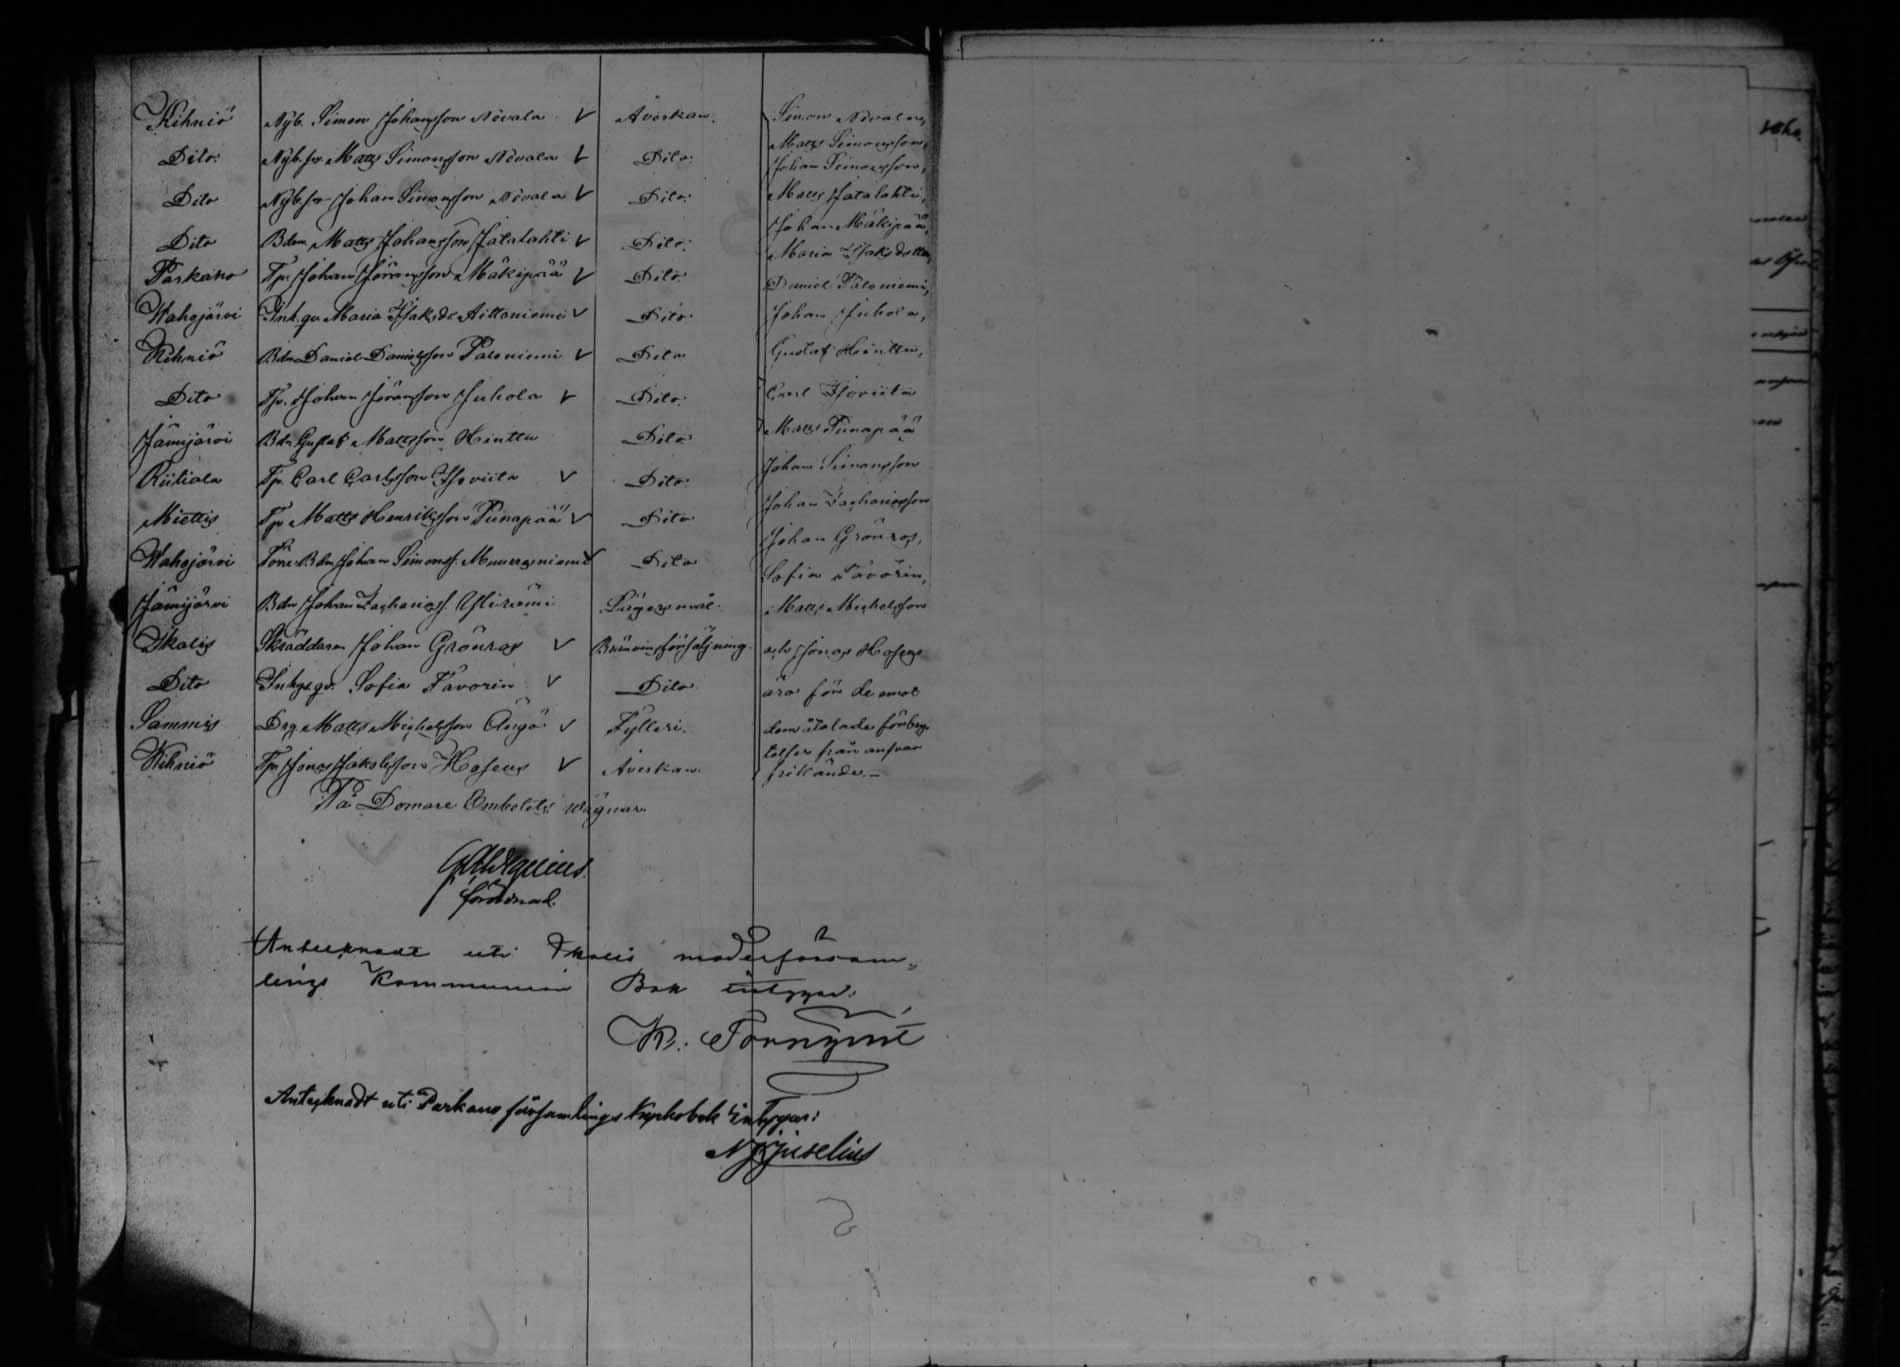 Kihniö Nyb. Simon Johansson Nevala √ Åverkan. Simon Nevala,
Dito: Nyb. sn Matts Simonsson Nevala √ Dito: Matts Simonsson,
Johan Simonsson,
Dito Nyb. sn Johan Simonsson Nevala √ Dito: Matts Jatalahti,
Johan Mäkipää,
Dito Bdn. Matts Johansson Jatalahti √ Dito: Maria Isaksdotter,
Parkano Tp. Johan Göransson Mäkipää √ Dito: Daniel Paloniemi,
Wahojärvi Inh.qv. Maria Isaksdr Aittoniemi √ Dito: Johan Juhola,
Kihniö Bdn Daniel Danielsson Paloniemi √ Dito Gustaf Hinttu,
Dito Tp. Johan Göransson Juhola √ Dito: Carl Isoviita
Jämijärvi Bdn Gustaf Mattsson Hinttu Dito Matts Punapää
Riitiala Tp. Carl Carlsson Isoviita √ Dito: Johan Simonsson
Miettis Tp Matts Henriksson Punapää √ Dito Johan Zachariasson
Wahojärvi Bdn Johan Simonss. √ Dito Johan Grönros,
Sofia Favorin,
Jämijärvi Bdn Johan Zachariass. Ylirämi Lägersmål. Matts Michelsson
Ikalis Skräddaren Johan Grönros √ Bränvinsförsäljning och Jonas Hoseus
Dito Inhys qv. Sofia Favorin √ Dito äro för de emot
Sammis Drg. Matts Michelsson Ängö √ Fylleri. dem åtalade förbry-
Kihniö Tp. Jonas Jakobsson Hoseus √ Åverkan. telser från ansvar
frikände.–
På Domare Embetets wägnar.
förordnad.
Antecknadt uti Ikalis moderförsam-
lings Kommunion Bok intygar:
K. Törnqvist
Antecknadt uti Parkano församlings Kyrkobok intygar:
Juselius